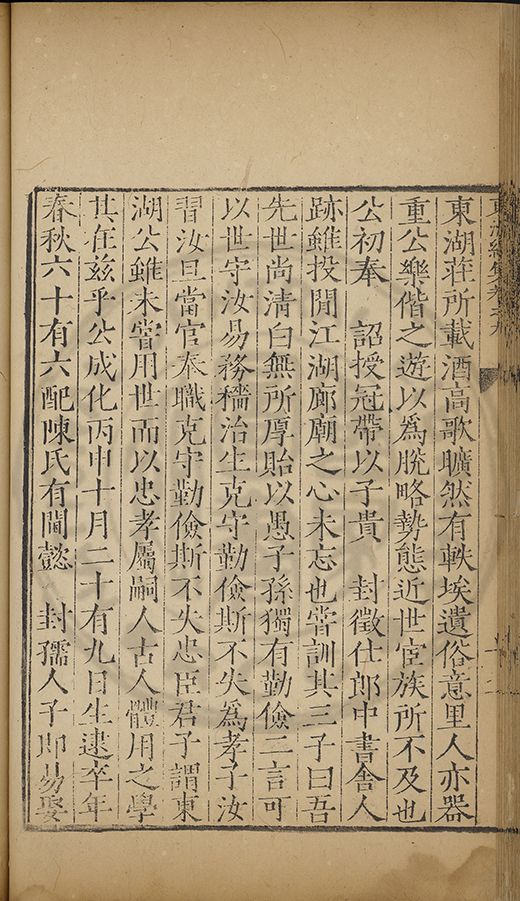 東湖莊所載酒高歌曠然有軼埃遺俗意里人亦器
重公樂偕之遊以為脫略勢態近世宦族所不及也
公初奉 詔授冠帶以子貴 封徵仕郎中書舍人
跡雖投閒江湖廊廟之心未忘也嘗訓其三子曰吾
先世尚清白無所厚貽以愚子孫獨有勤儉二言可
以世守汝易務穡治生克守勤儉斯不失為孝子汝
習汝旦當官奉職克守勤儉斯不失忠臣君子謂東
湖公雖未嘗用世而以忠孝屬嗣人古人體用之學
其在兹乎公成化丙申十月二十有九日生逮卒年
春秋六十有六配陳氏有閫懿 封孺人子即易娶